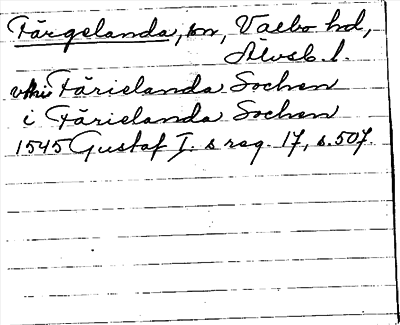 Färgelanda, sn, Valbo hd,
Älvsb. l.
Färielanda Sochen
i Färielanda Sochen
1545 Gustaf I. s reg. 17, s. 507.